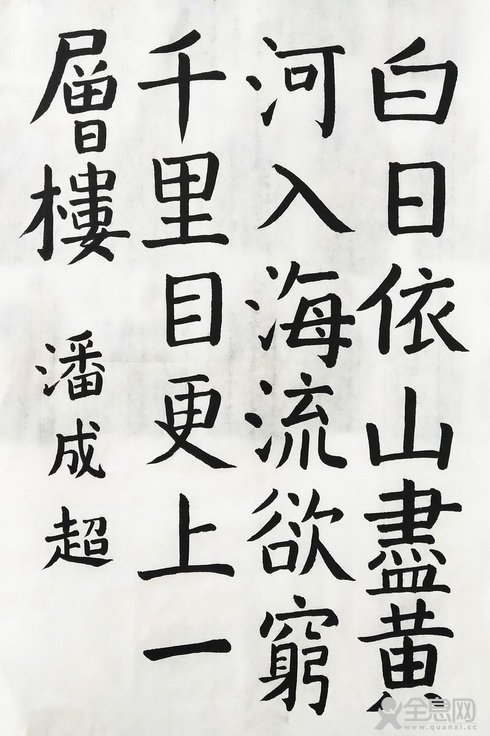 白日依山盡黄
河入海流欲窮
千里目更上一
層樓
潘成超
全息网
www.quanxi.cc